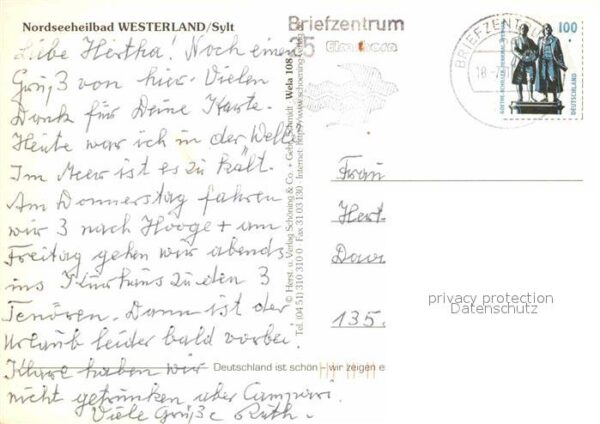 Nordseeheilbad WESTERLAND/Sylt
Liebe Hertha! Noch einen
Gruß von hier. Vielen
Dank für Deine Karte.
Heute war ich in der Welle
Im Meer ist es zu kalt.
Am Donnerstag fahren
wir 3 nach Hooge + am
Freitag gehen wir abends
ins Kurhaus zu den 3
Tenören. Dann ist der
Urlaub leider bald vorbei.
Klare haben wir
nicht getrunken aber Campari.
Viele Grüße Ruth.
Deutschland ist schön - wir zeigen e
© Herst. u. Verlag Schöning & Co. + Gebr. Schmidt Wela 108
Tel. (04 51) 310 310 0 Fax 31 03 130 Internet: http://www.schoening-verlag
Briefzentrum
25 Elmshorn
BRIEFZENTRUM
18.
100
DEUTSCHLAND
GOETHE-SCHILLER-DENKMAL WEIMAR
Frau
Hert
Dav
135.
privacy protection
Datenschutz